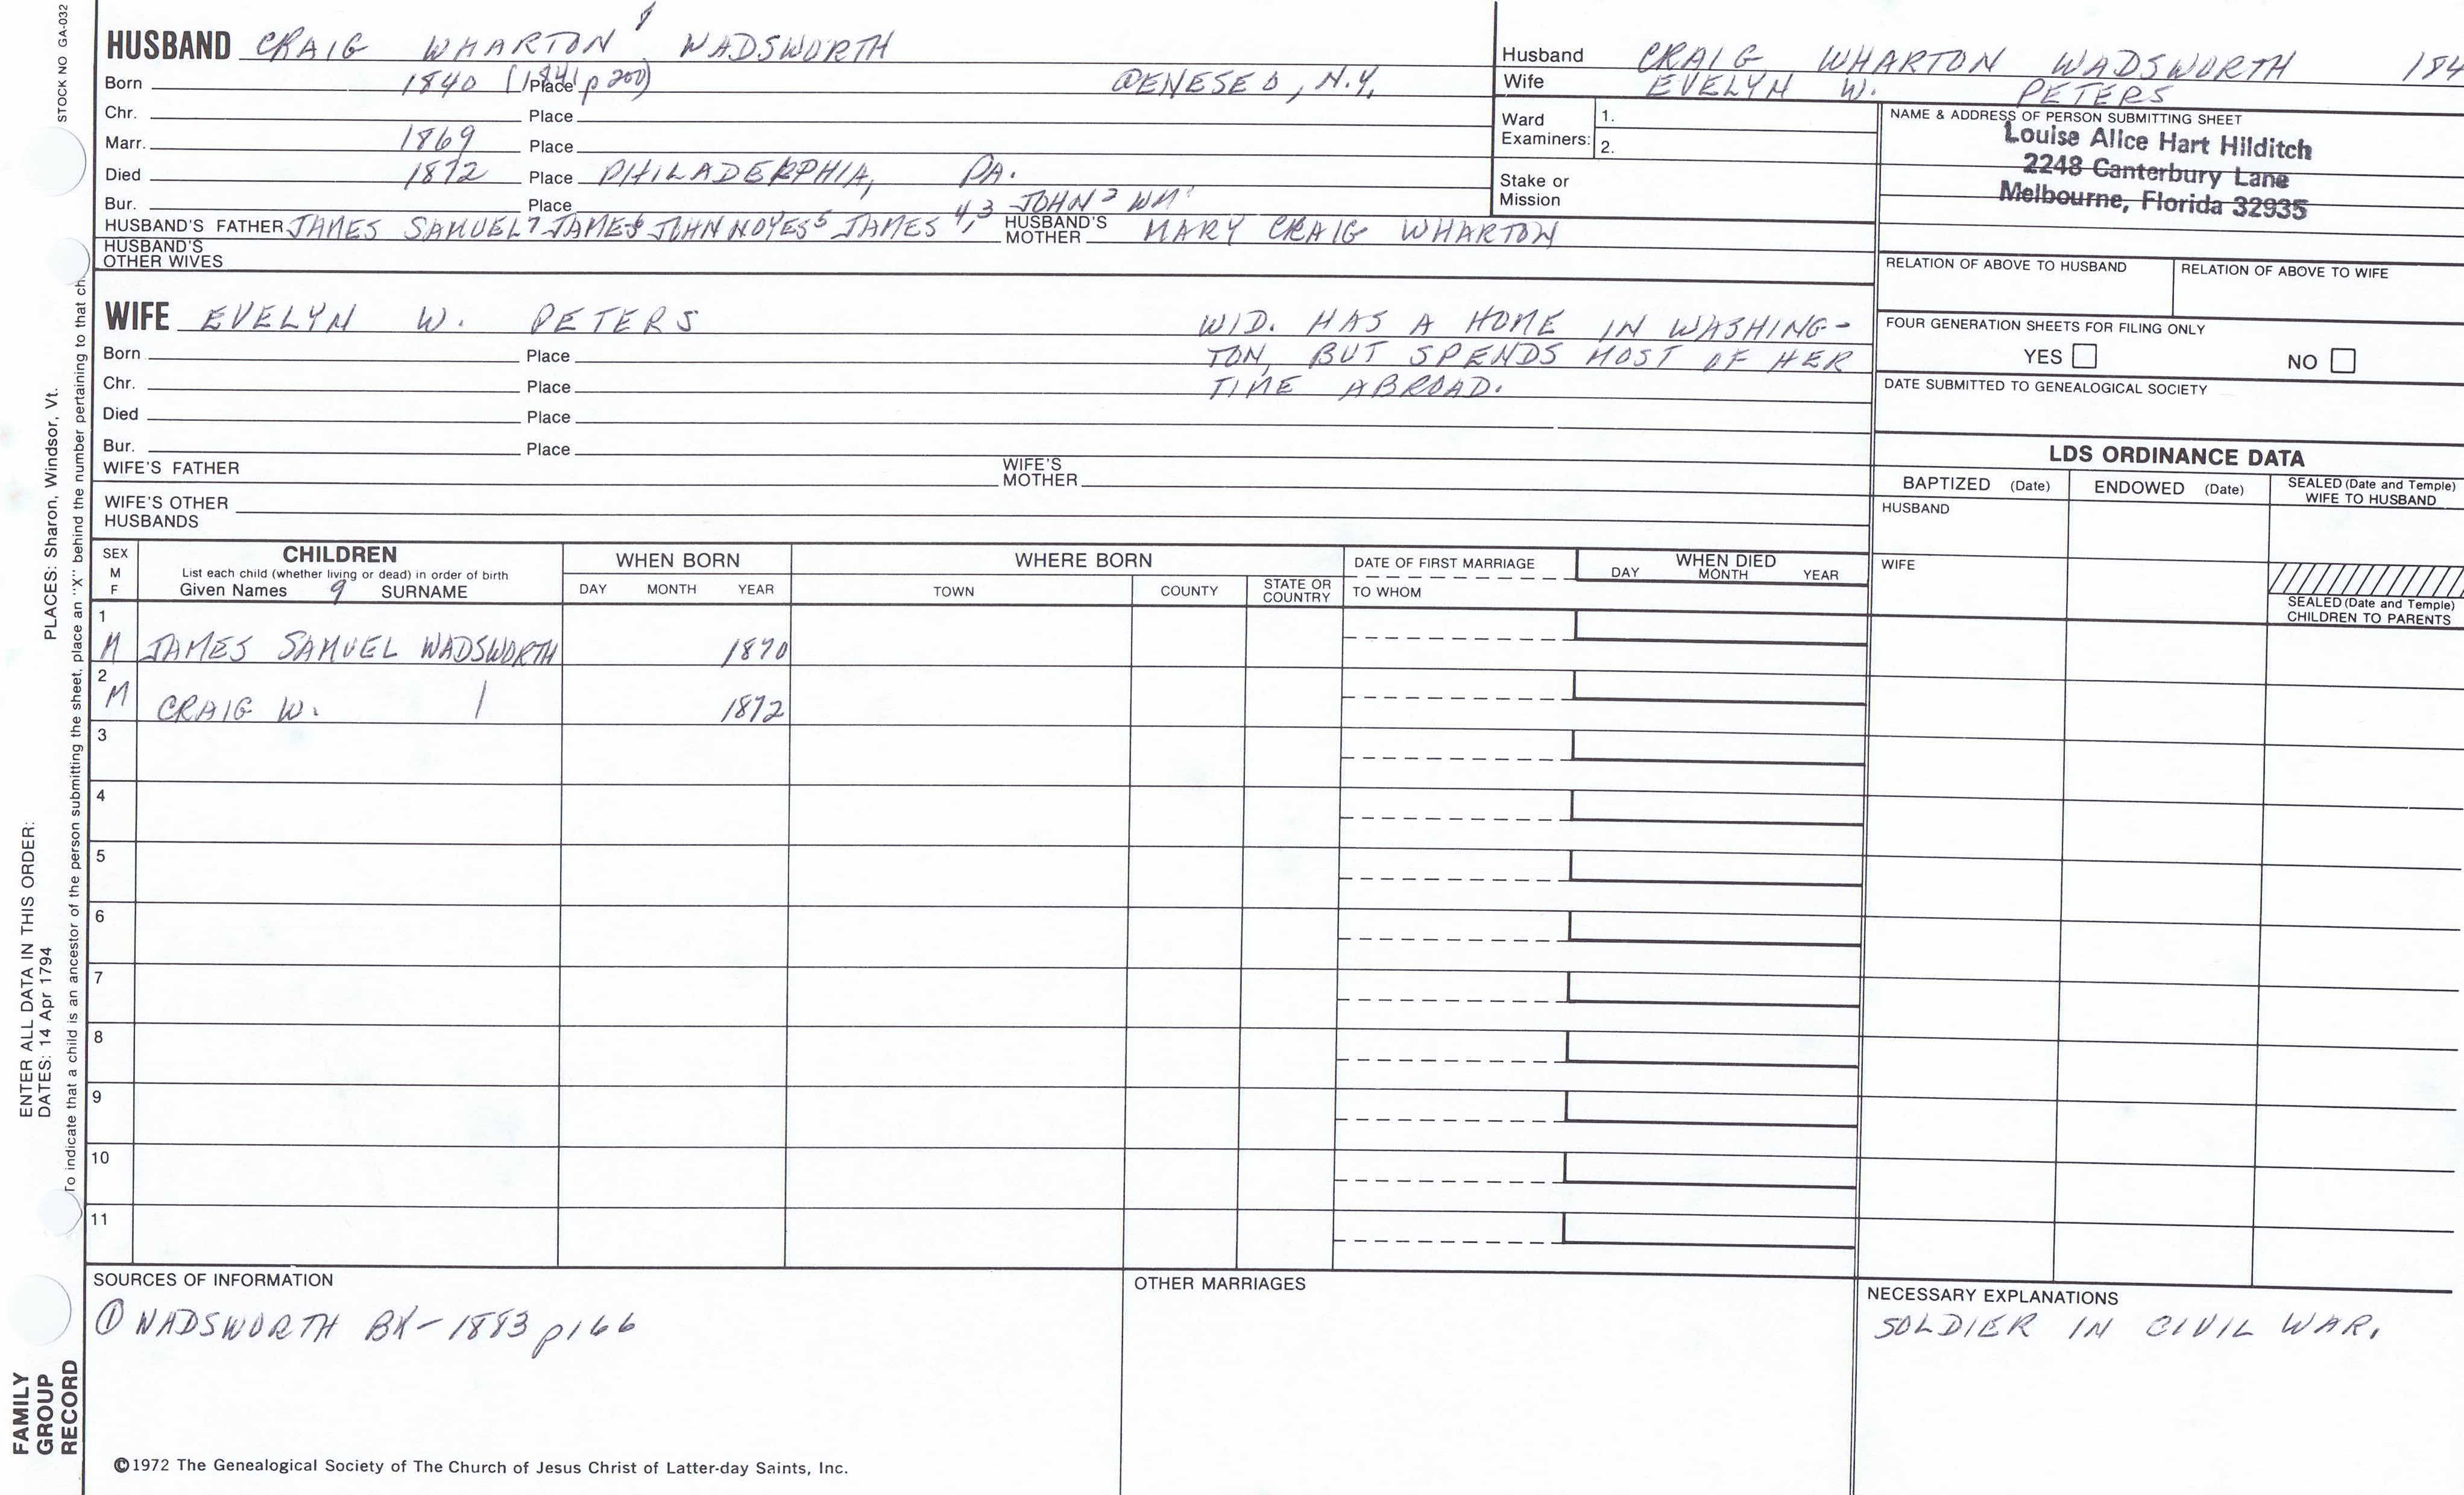 STOCK NO GA-032
HUSBAND CRAIG WHARTON 8 WADSWORTH
Born 1840 (1841 p 200) Place @ENESEO, N.Y.
Chr. Place
Marr. 1869 Place
Died 1872 Place PHILADERPHIA, PA.
Bur. Place
HUSBAND'S FATHER JAMES SAMUEL7 JAMES6 JOHN NOYES5 JAMES 4,3 JOHN2 WM1 HUSBAND'S MOTHER MARY CRAIG WHARTON
HUSBAND'S OTHER WIVES
Husband CRAIG WHARTON WADSWORTH 184
Wife EVELYN W. PETERS
Ward Examiners: 1.
2.
Stake or Mission
NAME & ADDRESS OF PERSON SUBMITTING SHEET
Louise Alice Hart Hilditch
2248 Canterbury Lane
Melbourne, Florida 32935
RELATION OF ABOVE TO HUSBAND RELATION OF ABOVE TO WIFE
FOUR GENERATION SHEETS FOR FILING ONLY
YES NO
DATE SUBMITTED TO GENEALOGICAL SOCIETY
WIFE EVELYN W. PETERS WID. HAS A HOME IN WASHING-
Born Place TON, BUT SPENDS MOST OF HER
Chr. Place TIME ABROAD.
Died Place
Bur. Place
WIFE'S FATHER WIFE'S MOTHER
WIFE'S OTHER HUSBANDS
LDS ORDINANCE DATA
BAPTIZED (Date) ENDOWED (Date) SEALED (Date and Temple) WIFE TO HUSBAND
HUSBAND
WIFE
SEALED (Date and Temple) CHILDREN TO PARENTS
SEX M F CHILDREN
List each child (whether living or dead) in order of birth
Given Names 9 SURNAME
WHEN BORN
DAY MONTH YEAR
WHERE BORN
TOWN COUNTY STATE OR COUNTRY
DATE OF FIRST MARRIAGE
TO WHOM
WHEN DIED
DAY MONTH YEAR
1
M JAMES SAMUEL WADSWORTH 1870
2
M CRAIG W. | 1872
3
4
5
6
7
8
9
10
11
SOURCES OF INFORMATION
① WADSWORTH BK - 1883 p166
OTHER MARRIAGES
NECESSARY EXPLANATIONS
SOLDIER IN CIVIL WAR.
©1972 The Genealogical Society of The Church of Jesus Christ of Latter-day Saints, Inc.
FAMILY GROUP RECORD
ENTER ALL DATA IN THIS ORDER:
DATES: 14 Apr 1794
PLACES: Sharon, Windsor, Vt.
To indicate that a child is an ancestor of the person submitting the sheet, place an "X" behind the number pertaining to that ch